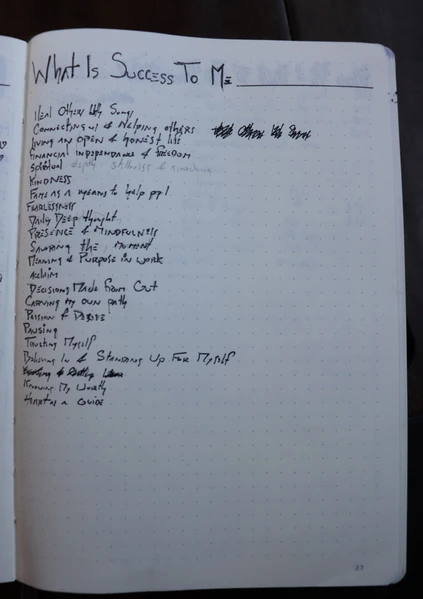 What Is Success To Me
Heal Others With Song
Connecting w/ & Helping others
Living an open & honest life
Financial independence & freedom
Spiritual depth stillness &
Kindness
Fame as a means to help ppl
Fearlessness
Daily Deep thought
Presence & Mindfulness
Savoring the moment
Meaning & Purpose in work
Acclaim
Decisions Made From Gut
Carving my own path
Passion & Desire
Pausing
Trusting Myself
Believing In & Standing Up For Myself
Knowing My Worth
Heart as a Guide
27